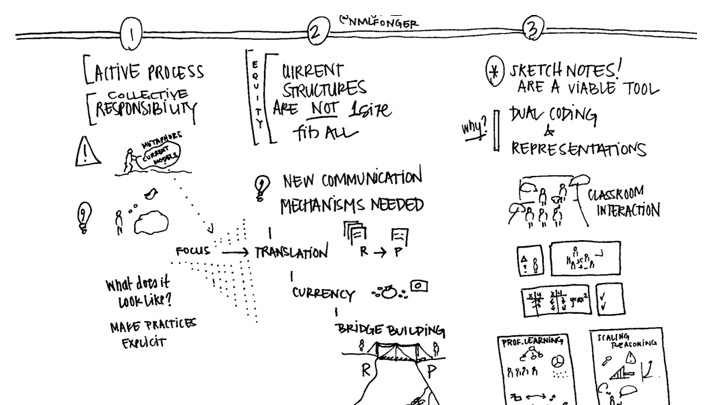 @NMLFONGER
1
ACTIVE PROCESS
COLLECTIVE
RESPONSIBILITY
!
METAPHORS
CURRENT
MODELS
FOCUS
What does it
look like?
MAKE PRACTICES
EXPLICIT
2
EQUITY
CURRENT
STRUCTURES
ARE NOT 1 size
fits ALL
NEW COMMUNICATION
MECHANISMS NEEDED
TRANSLATION R → P
CURRENCY
BRIDGE BUILDING
R P
3
* SKETCHNOTES!
ARE A VIABLE TOOL
why? DUAL CODING
&
REPRESENTATIONS
CLASSROOM
INTERACTION
PROF. LEARNING
SCALING
REASONING